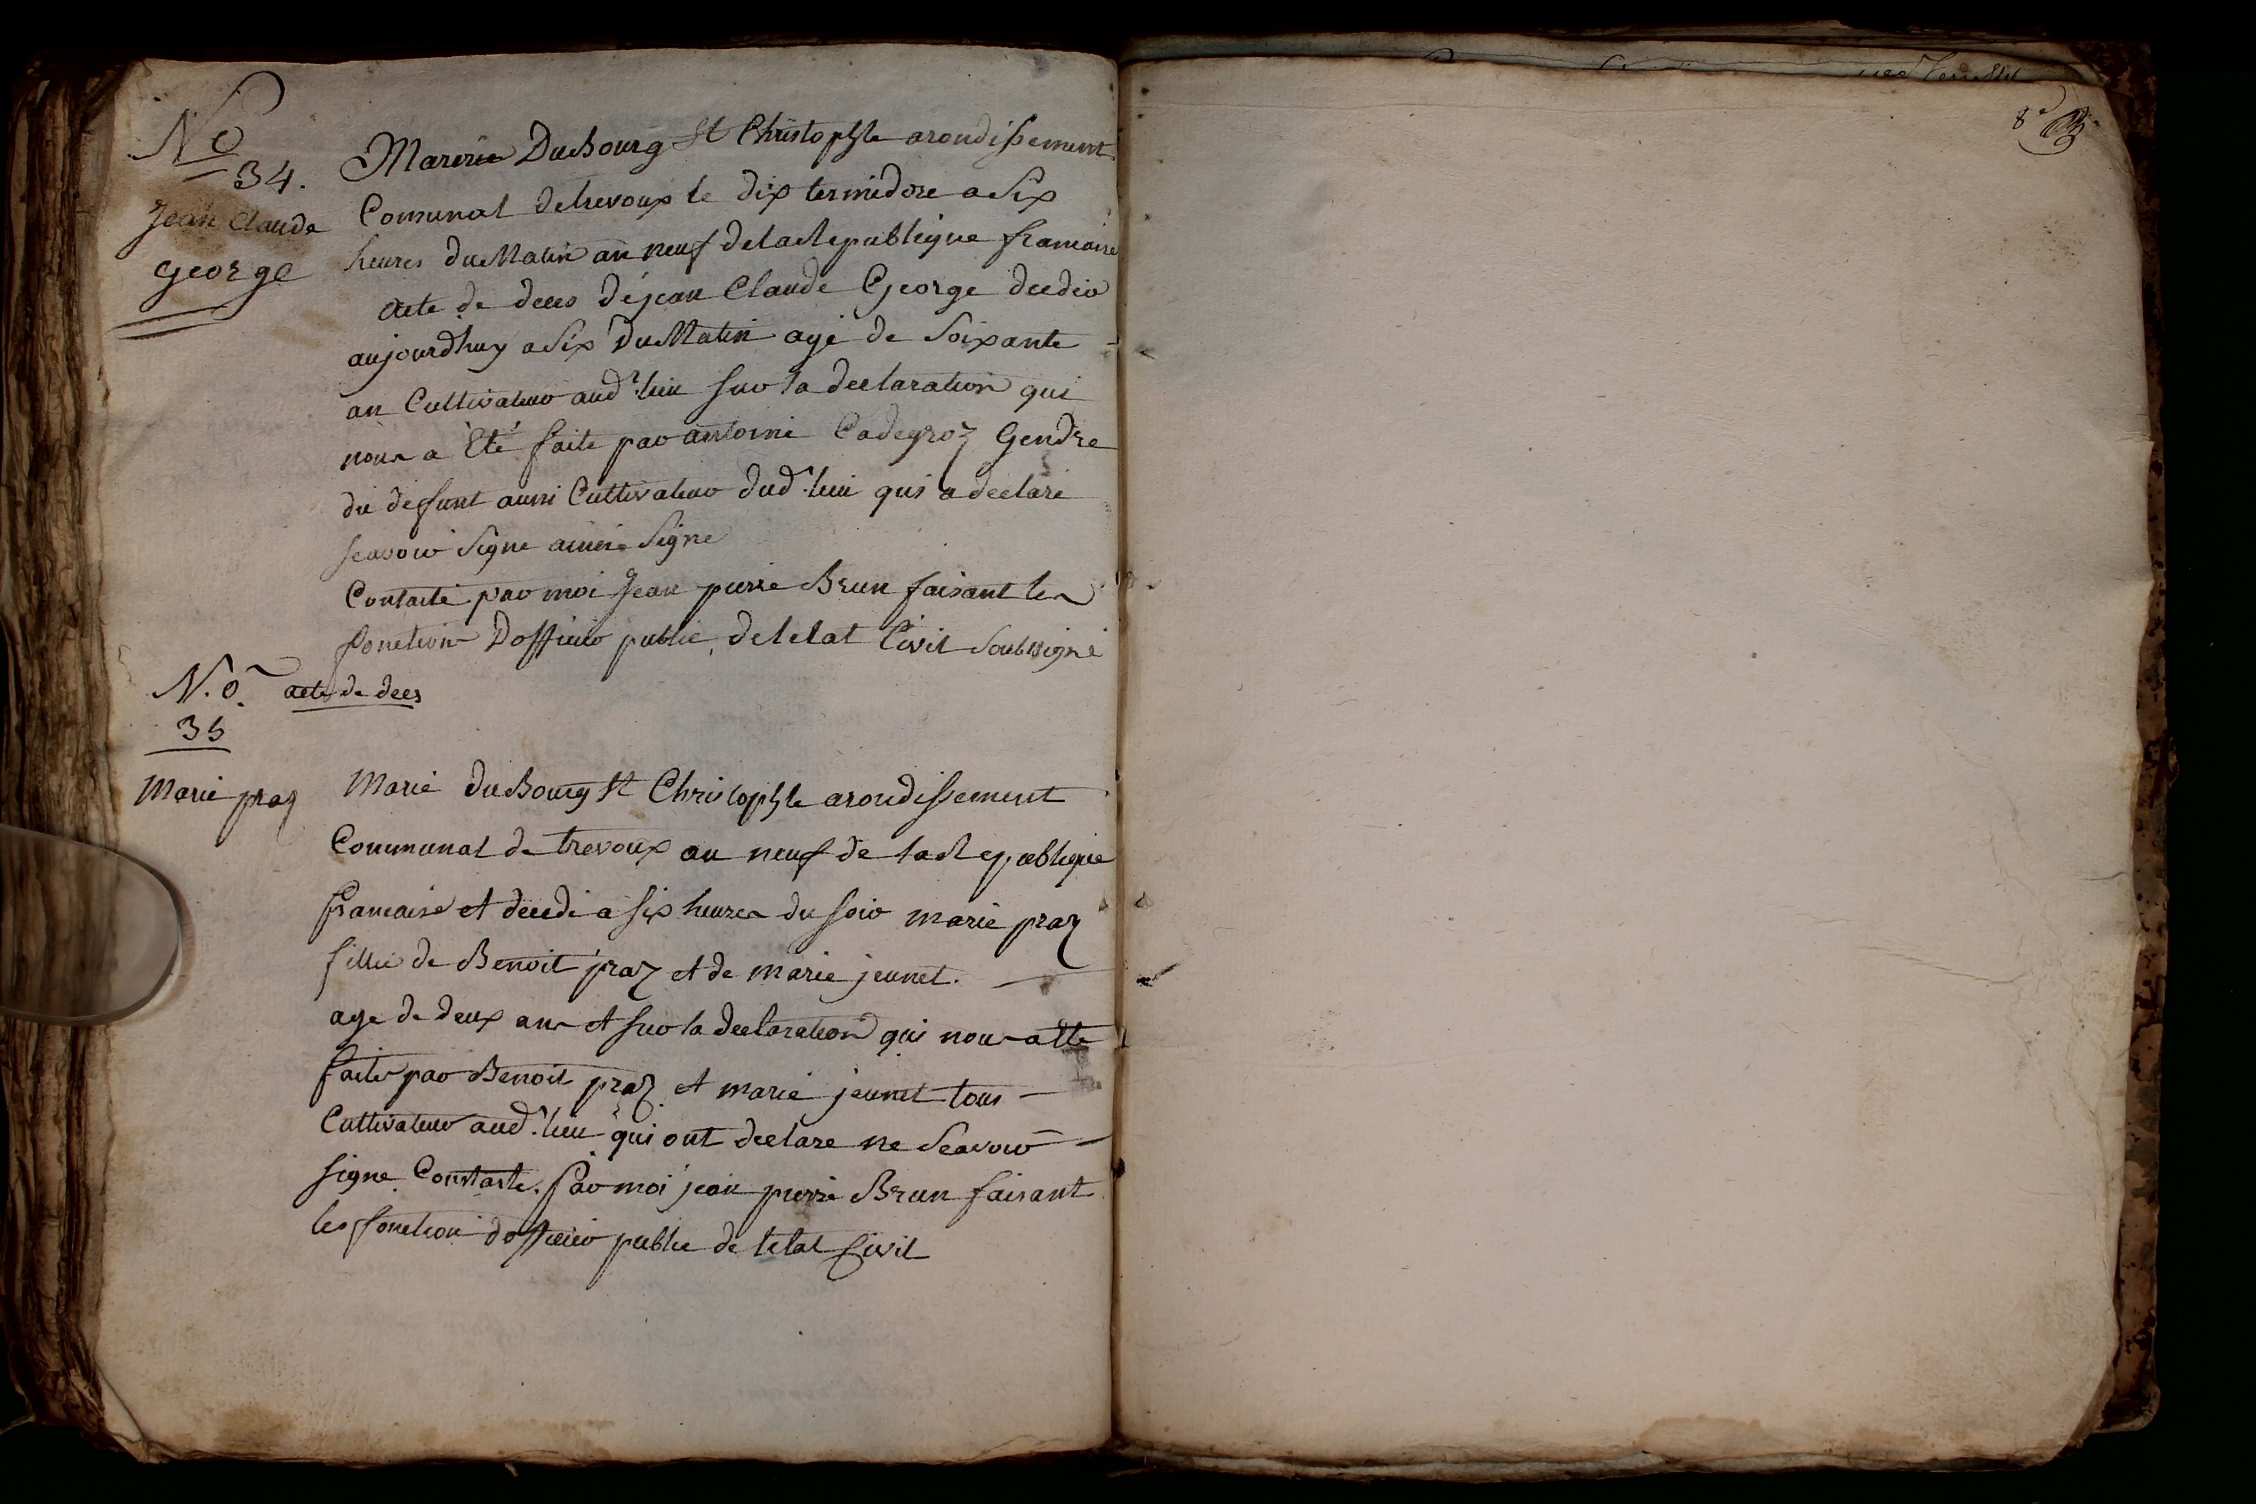 No
34.
Jean Claude
george
Marerie DuBourg St Christophle arondissement
Comunal de trevoux le dix termidore a Six
heures du Matin an neuf de la Republique francaise
acte de deces de jean Claude George decedé
aujourdhuy a Six du Matin agé de Soixante
an Cultivateur aud. lieu sur la declaration qui
nous a Eté faite par antoine Cadegroz Gendre
du defunt aussi Cultivateur dud. lieu qui a declaré
scavoir Signe ainsi Signe
Constaté par moi Jean pierre Brun faisant les
fonction D'officier public de letat Civil Soubsigné
N.o acte de deces
35
Marie praz
Marie du Bourg St Christophle arondissement
Communal de trevoux an neuf de la Republique
francaise et decedé a six heures du soir marie praz
fillie de Benoit praz et de marie jeunet.
age de deux ans et sur la declaration qui nous a ete
faite par Benoit praz et marie jeunet tous
Cultivateur aud. lieu qui ont declare ne Scavoir
signe Constaste. Par moi jean pierre Brun faisant
les fonction d'officier public de letat Civil
8e